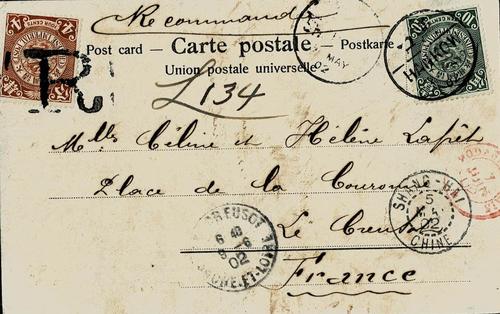 Recommandé
Post card — Carte postale — Postkarte
Union postale universelle
R
L 134
MAY
02
Melles Céline et Hélène Lapèt
Place de la Couronne
Le Creusot
France
SHANG-HAI
5
MAI
02
CHINE
CREUSOT
6
9-6
02
SAONE-ET-LOIRE